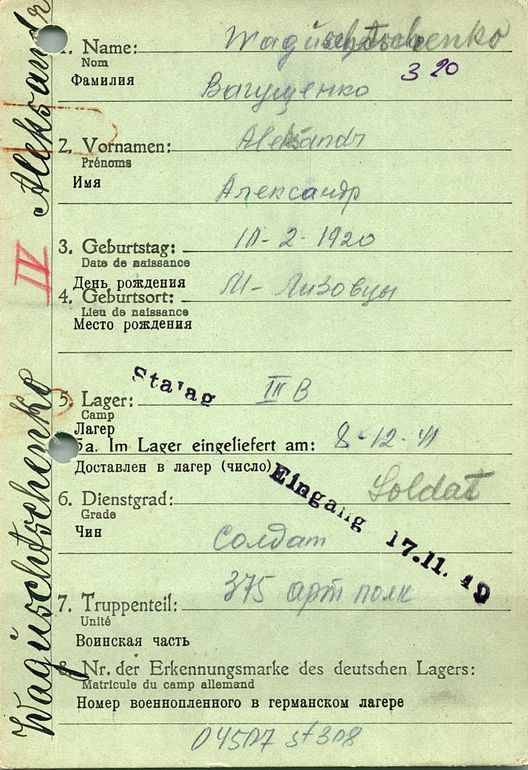 1. Name: Waguschtschenko
Nom
Фамилия Вагущенко
3 20
2. Vornamen: Aleksandr
Prénoms
Имя Александр
3. Geburtstag: 10-2-1920
Date de naissance
День рождения
4. Geburtsort: М-Лизовцы
Lieu de naissance
Место рождения
5. Lager: Stalag III B
Camp
Лагер
5a. Im Lager eingeliefert am: 8-12-41
Доставлен в лагер (число)
Eingang 17.11.49
6. Dienstgrad: Soldat
Grade
Чин Солдат
7. Truppenteil: 375 арт полк
Unité
Воинская часть
8. Nr. der Erkennungsmarke des deutschen Lagers:
Matricule du camp allemand
Номер военнопленного в германском лагере
Waguschtschenko IV Aleksandr